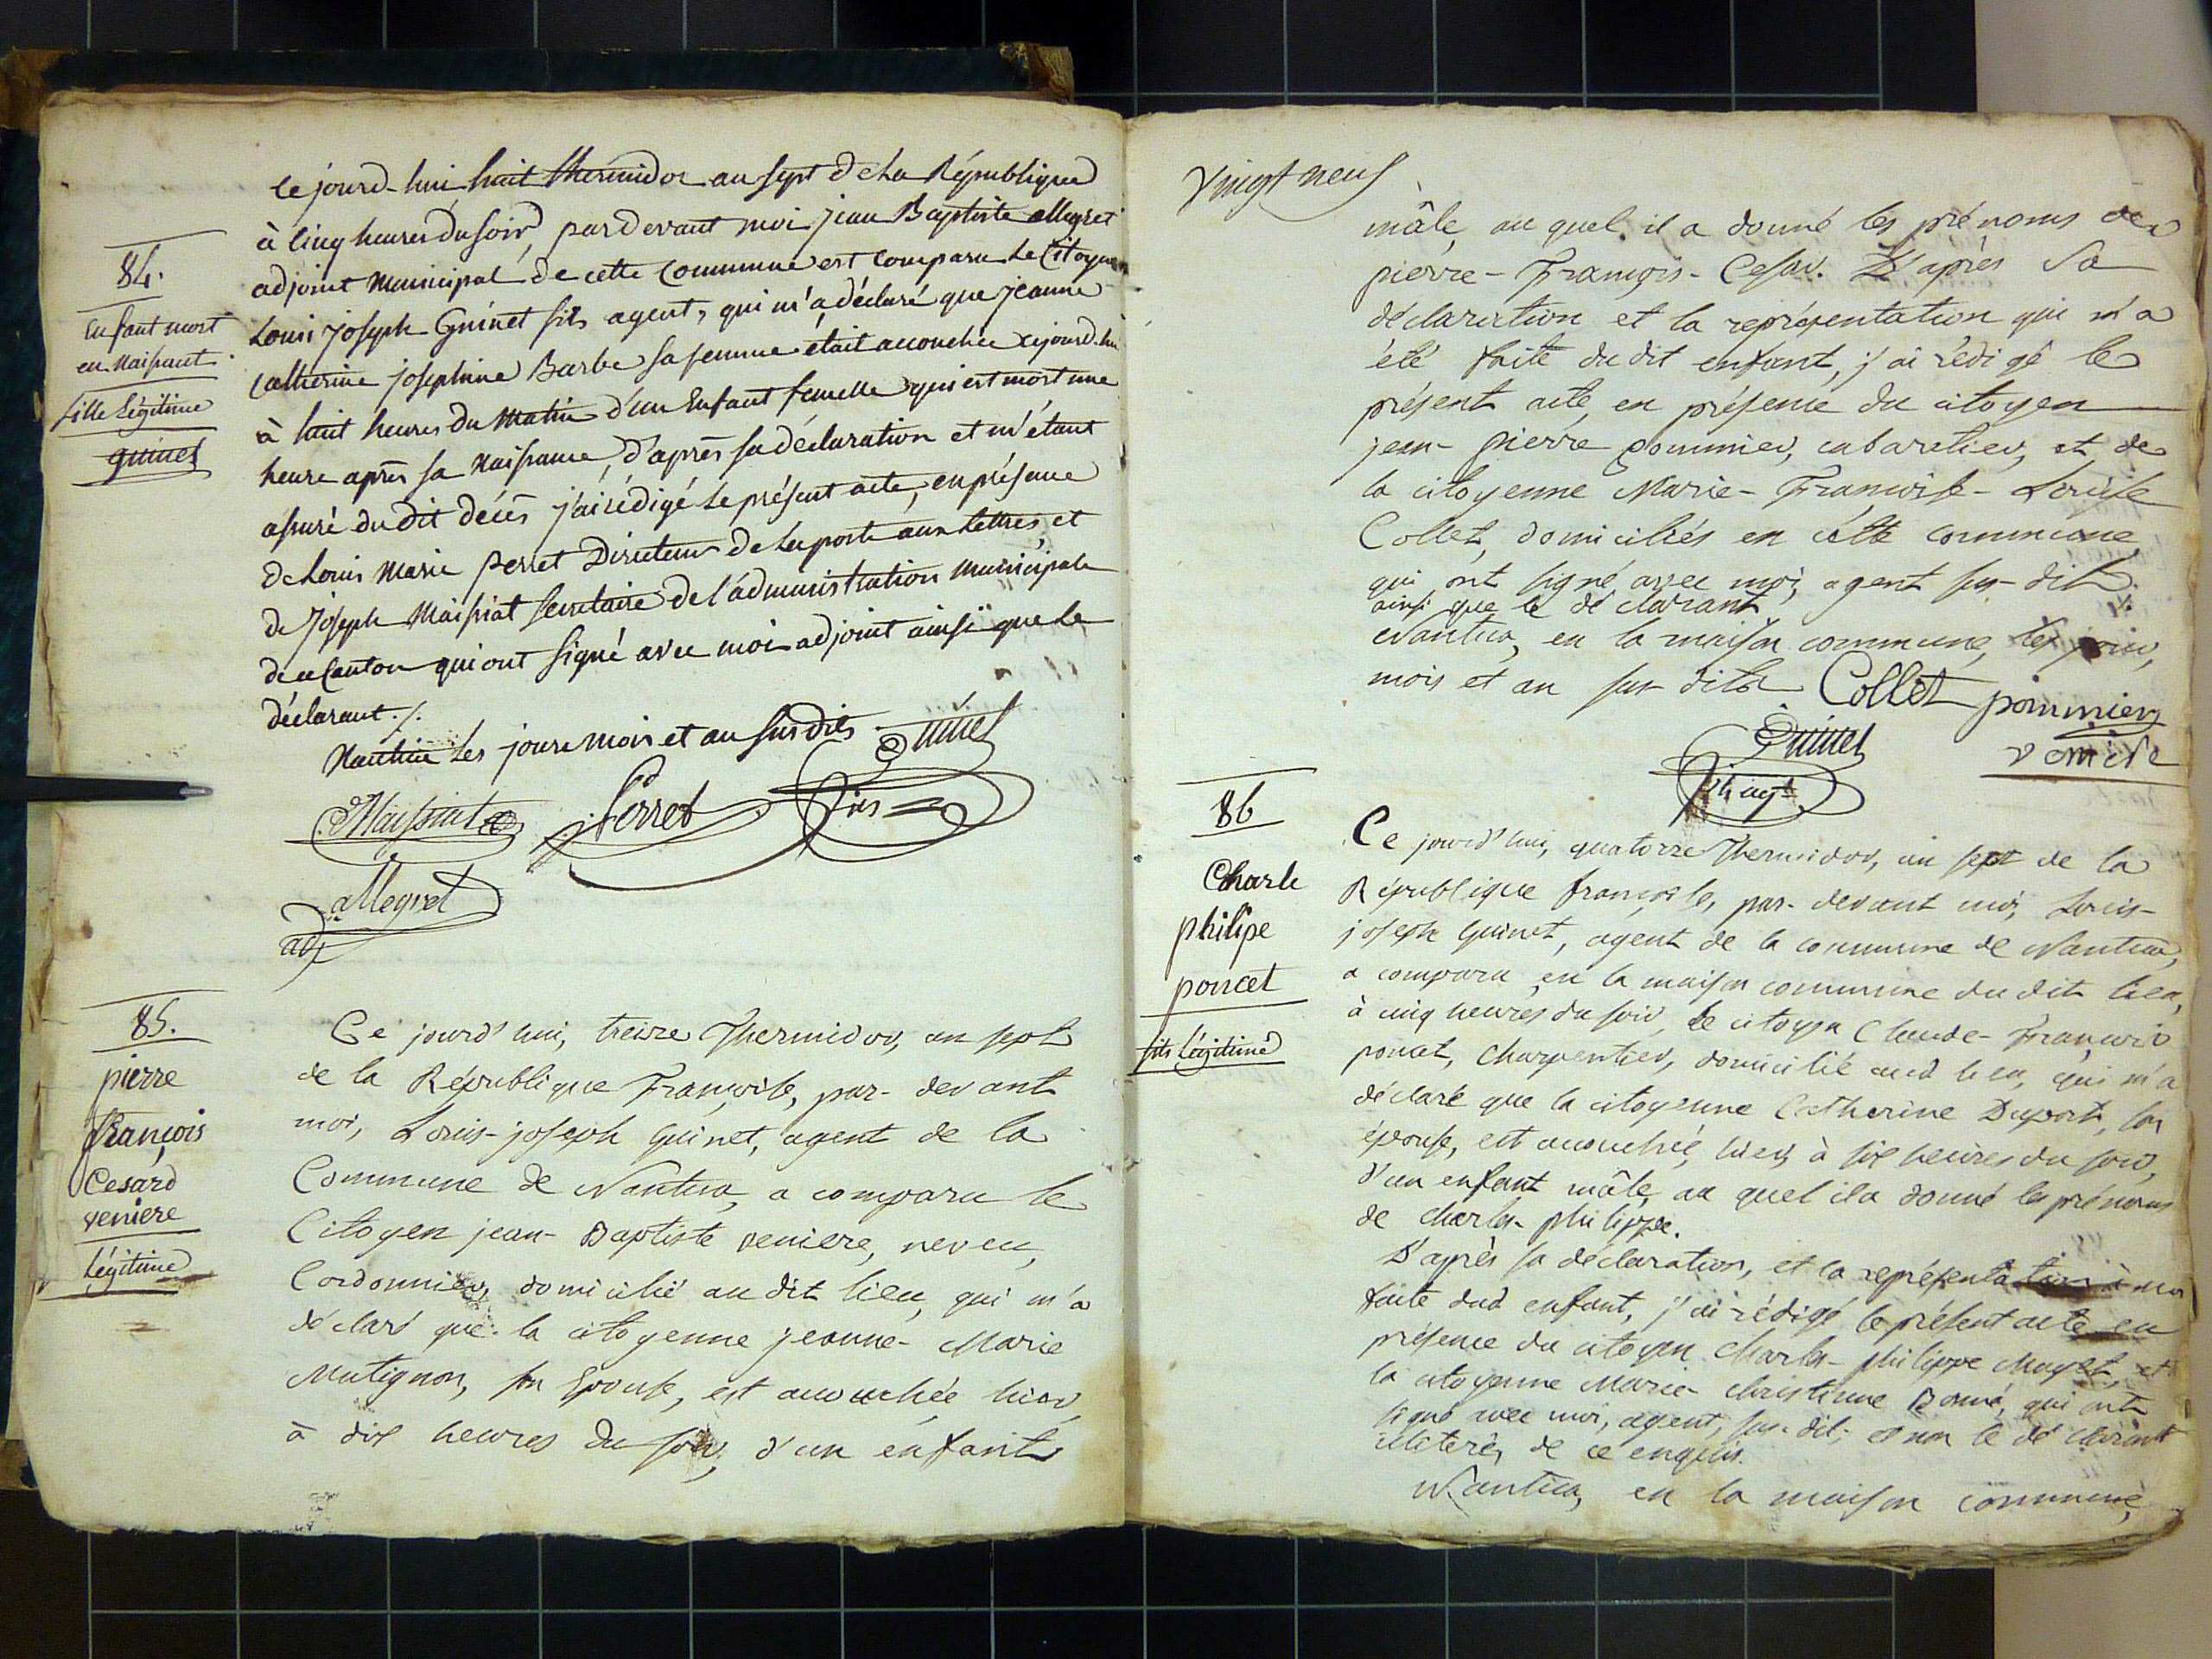 84.
Enfant mort
en Naissant
fille Légitime
guinet
Ce jourd-hui huit thermidor an sept de La République
à Cinq heures du soir, pardevant moi jean Baptiste allegret
adjoint Municipal de cette Commune est comparu Le Citoyen
Louis joseph Guinet fils agent, qui m'a déclaré que jeanne
Catherine josephine Barbe sa femme était accouchée cejourd.hui
à huit heures du Matin d'un Enfant femelle qui est mort une
heure après sa Naissance, d'après sa déclaration et m'étant
assuré du dit décès j'ai rédigé Le présent acte, en présence
de Louis Marie Perret Directeur de La poste aux Lettres, et
de Joseph Maissiat secretaire de l'administration municipale
de ce Canton qui ont signé avec moi adjoint ainsi que Le
déclarant ./.
Nantua Les jours mois et an susdits
Guinet
Maissiat
Perret
fils
allegret
adj
85.
pierre
françois
Cesard
veniere
Légitime
Ce jourd'hui, treize Thermidor, an sept
de la République Françoise, par-devant
moi, Louis-joseph Guinet, agent de la
Commune de Nantua, a comparu le
Citoyen jean-Baptiste veniere, neveu,
Cordonnier, domicilié au dit lieu, qui m'a
déclaré que la citoyenne jeanne-Marie
Mutignon, son Epouse, est accouchée hier,
à dix heures du soir, d'un enfant
Vingt neuf
mâle, au quel il a donné les prénoms de
pierre-François-Cesar. D'après sa
déclaration et la représentation qui m'a
été faite du dit enfant, j'ai rédigé le
présent acte, en présence du citoyen
jean-pierre pommier, cabaretier, et de
la citoyenne Marie-Françoise-Louise
Collet, domiciliés en cette commune,
qui ont signé avec moi, agent sus-dit
ainsi que le déclarant
Nantua, en la maison commune, les jour,
mois et an sus-dits
Collet pommier
Guinet
veniere
fils agt
86
Charle
philipe
poncet
fils Légitime
Ce jourd'hui, quatorze Thermidor, an sept de la
République françoise, par-devant moi, Louis-
joseph Guinet, agent de la commune de Nantua,
a comparu en la maison commune du dit lieu,
à cinq heures du soir, le citoyen Claude-François
poncet, Charpentier, domicilié aud lieu, qui m'a
déclaré que la citoyenne Catherine Duport, son
épouse, est accouchée, hier, à six heures du soir,
d'un enfant mâle, au quel il a donné les prénoms
de charles-philippe.
D'après sa déclaration, et la représentation à moi
faite dud enfant, j'ai rédigé le présent acte en
présence du citoyen Charles-philippe Muget, et
la citoyenne Marie-christinne Bonné, qui ont
signé avec moi, agent, sus-dit, et non le déclarant
illiteré, de ce enquis.
Nantua, en la maison commune,